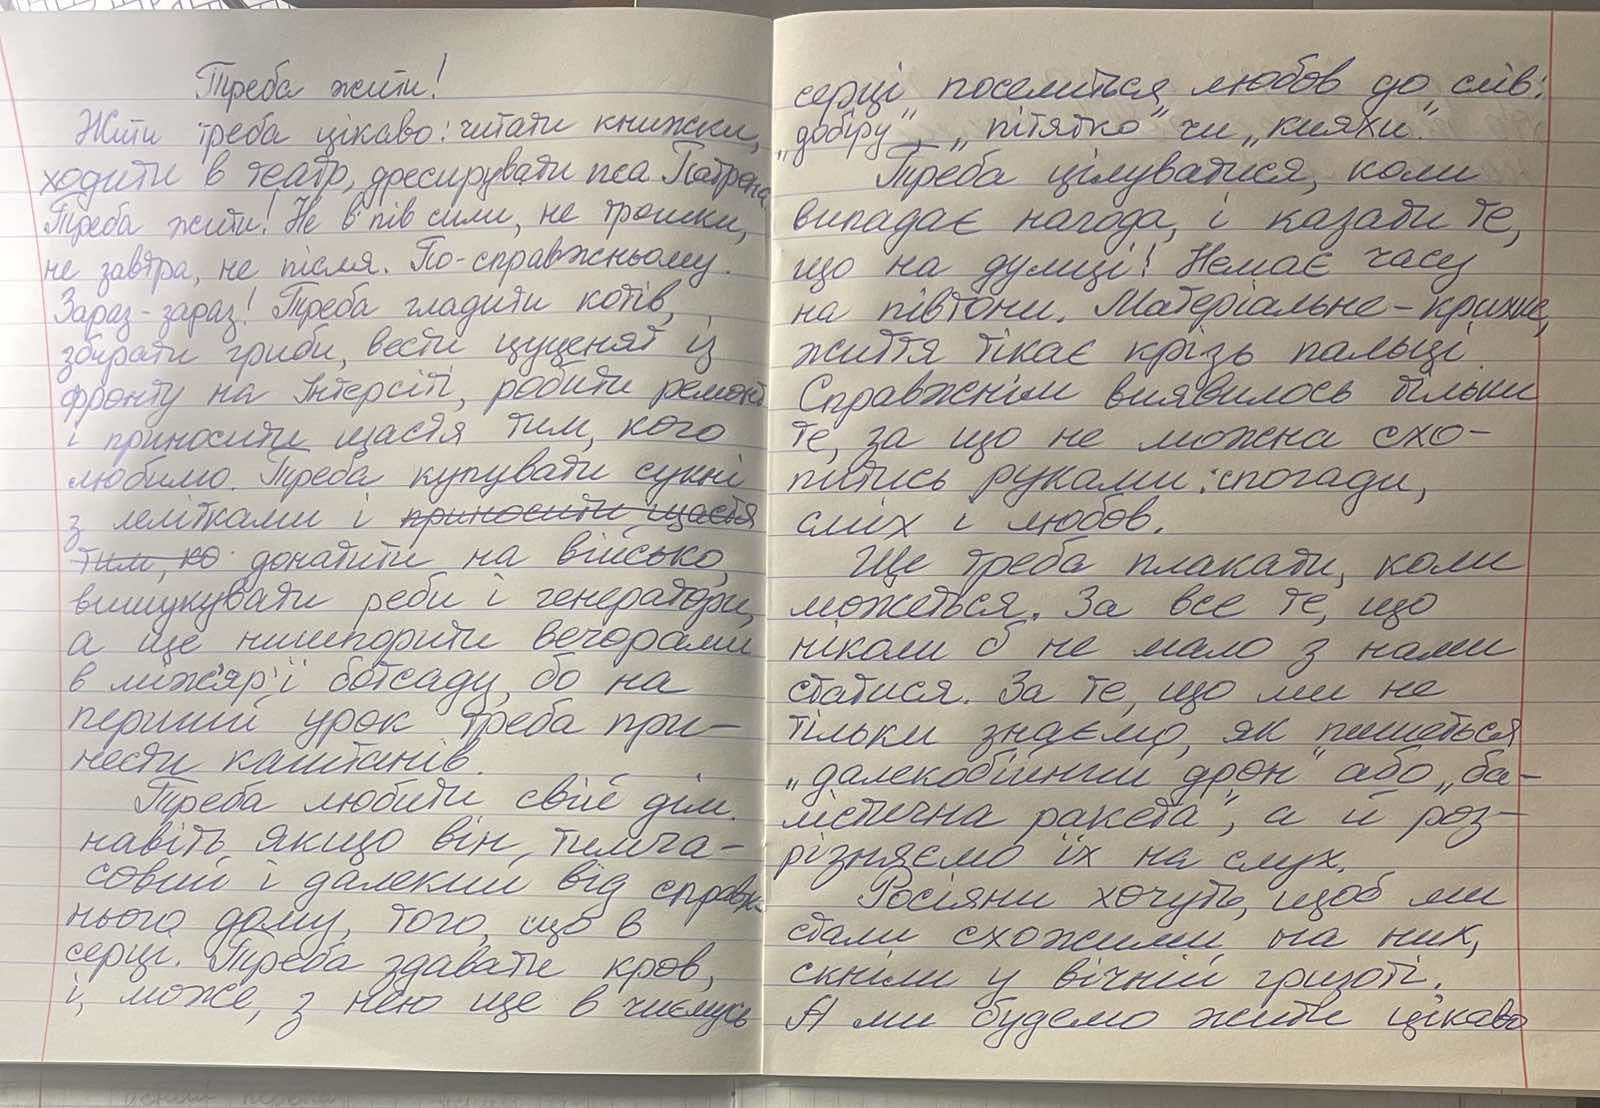 Треба жити!
Жити треба цікаво: читати книжки,
ходити в театр, дресирувати пса Патрона.
Треба жити! Не в пів сили, не трошки,
не завтра, не після. По-справжньому.
Зараз-зараз! Треба гладити котів,
збирати гриби, везти цуценят із
фронту на Інтерсіті, робити ремонт
і приносити щастя тим, кого
любимо. Треба купувати сукні
з леліткам и і приносити щастя
тим, ко донатити на військо,
вишукувати реби і генератори,
а ще нишпорити вечорами
в лиж'ярі ботсаду, бо на
перший урок треба при-
нести каштанів.
Треба любити свій дім.
навіть якщо він, тимча-
совий і далекий від справж-
нього дому, того, що в
серці. Треба здавати кров,
і, може, з нею ще в чиємусь
серці поселиться любов до слів:
„добіру", „пітятко" чи „кияхи".
Треба цілуватися, коли
випадає нагода, і казати те,
що на думці! Немає часу
на півтони. Матеріальне-крихке,
життя тікає крізь пальці.
Справжнім виявилось тільки
те, за що не можна схо-
питись руками: спогади,
сміх і любов.
Ще треба плакати, коли
можеться. За все те, що
ніколи б не мало з нами
статися. За те, що ми не
тільки знаємо, як пишеться
„далекобійний дрон" або „ба-
лістична ракета", а й роз-
різняємо їх на слух.
Росіяни хочуть, щоб ми
стали схожими на них,
скніли у вічній гризоті.
А ми будемо жити цікаво